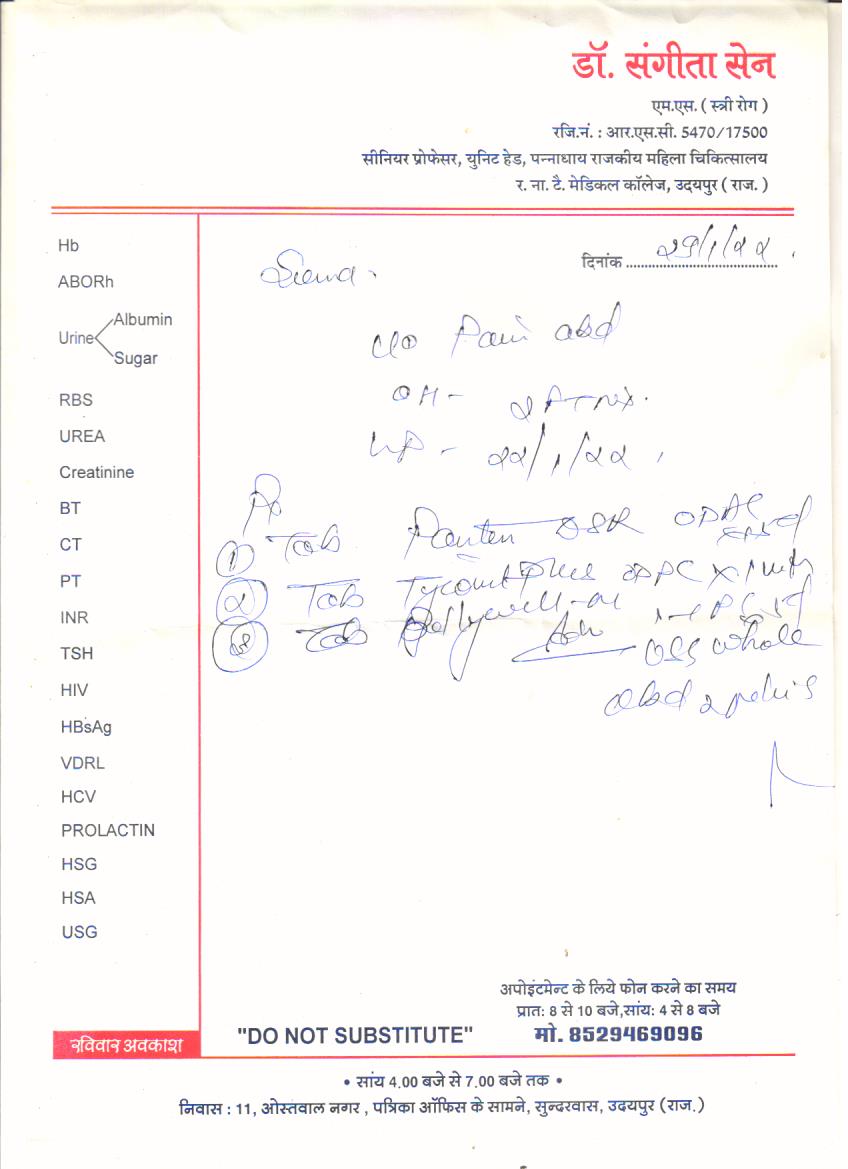 डॉ. संगीता सेन
एम.एस. ( स्त्री रोग )
रजि.नं. : आर.एस.सी. 5470/17500
सीनियर प्रोफेसर, युनिट हेड, पन्नाधाय राजकीय महिला चिकित्सालय
र. ना. टै. मेडिकल कॉलेज, उदयपुर ( राज. )
दिनांक २९/१/२२
Hb
ABORh
Urine
Albumin
Sugar
RBS
UREA
Creatinine
BT
CT
PT
INR
TSH
HIV
HBsAg
VDRL
HCV
PROLACTIN
HSG
HSA
USG
रविवार अवकाश
C/o Pain abd
OH -
LMP - २२/१/२२
Rx
① Tab DSR
② Tab Plus
Tab
Adv USG whole
abd & pelvis
अपोइंटमेन्ट के लिये फोन करने का समय
प्रातः 8 से 10 बजे,सांयः 4 से 8 बजे
"DO NOT SUBSTITUTE" मो. 8529469096
• सांय 4.00 बजे से 7.00 बजे तक •
निवास : 11, ओस्तवाल नगर , पत्रिका ऑफिस के सामने, सुन्दरवास, उदयपुर (राज.)